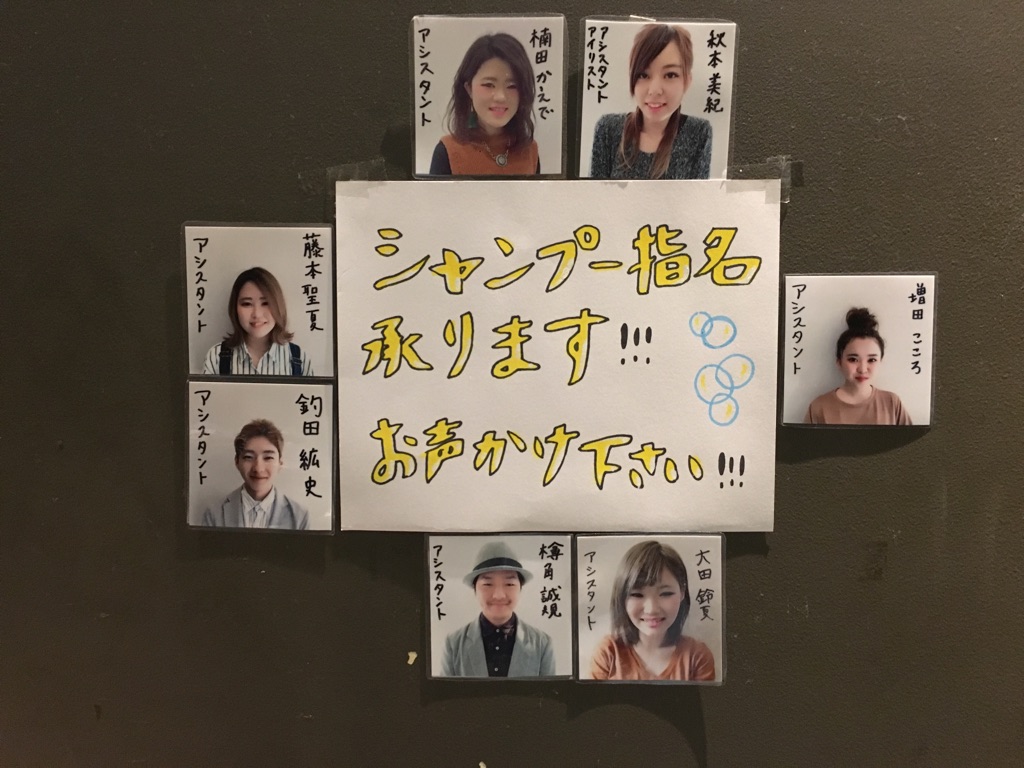 楠田かえで
アシスタント
秋本美紀
アシスタント
アイリスト
藤本聖夏
アシスタント
シャンプー指名
承ります!!!
お声かけ下さい!!!
増田こころ
アシスタント
釣田紘史
アシスタント
樽角誠規
アシスタント
大田鈴夏
アシスタント